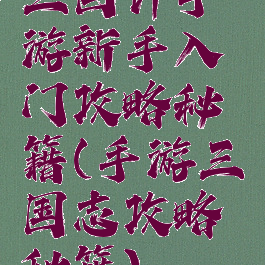 游新手入
门攻略秘
籍(手游三
国志攻略
秘籍)